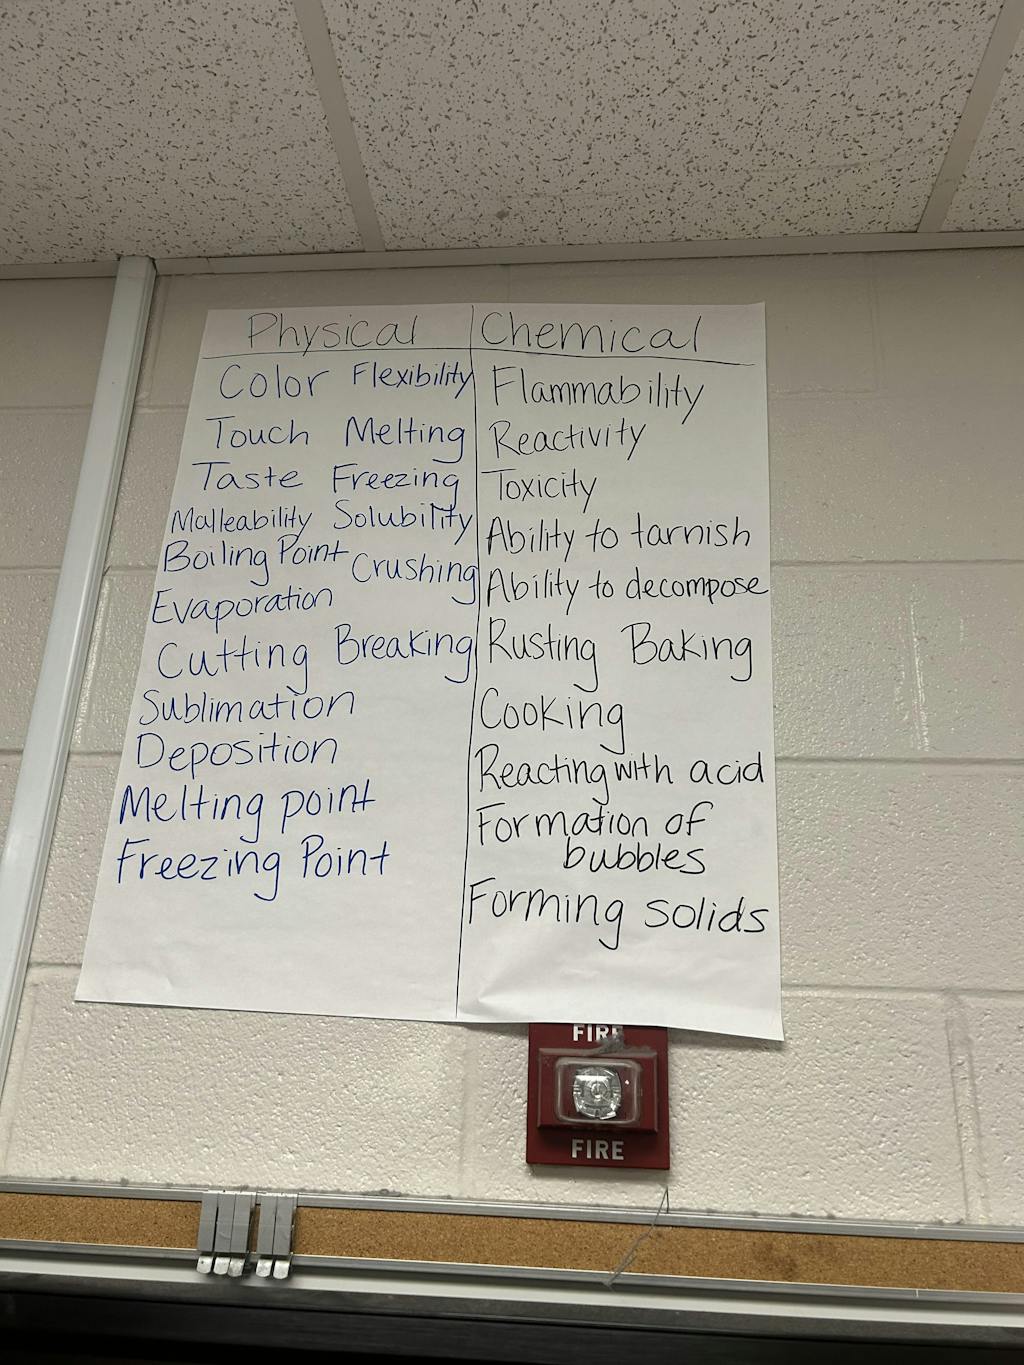 Physical Chemical
Color Flexibility
Touch Melting
Taste Freezing
Malleability Solubility
Boiling Point Crushing
Evaporation
Cutting Breaking
Sublimation
Deposition
Melting point
Freezing Point
Flammability
Reactivity
Toxicity
Ability to tarnish
Ability to decompose
Rusting Baking
Cooking
Reacting with acid
Formation of
bubbles
Forming solids
FIRE
FIRE